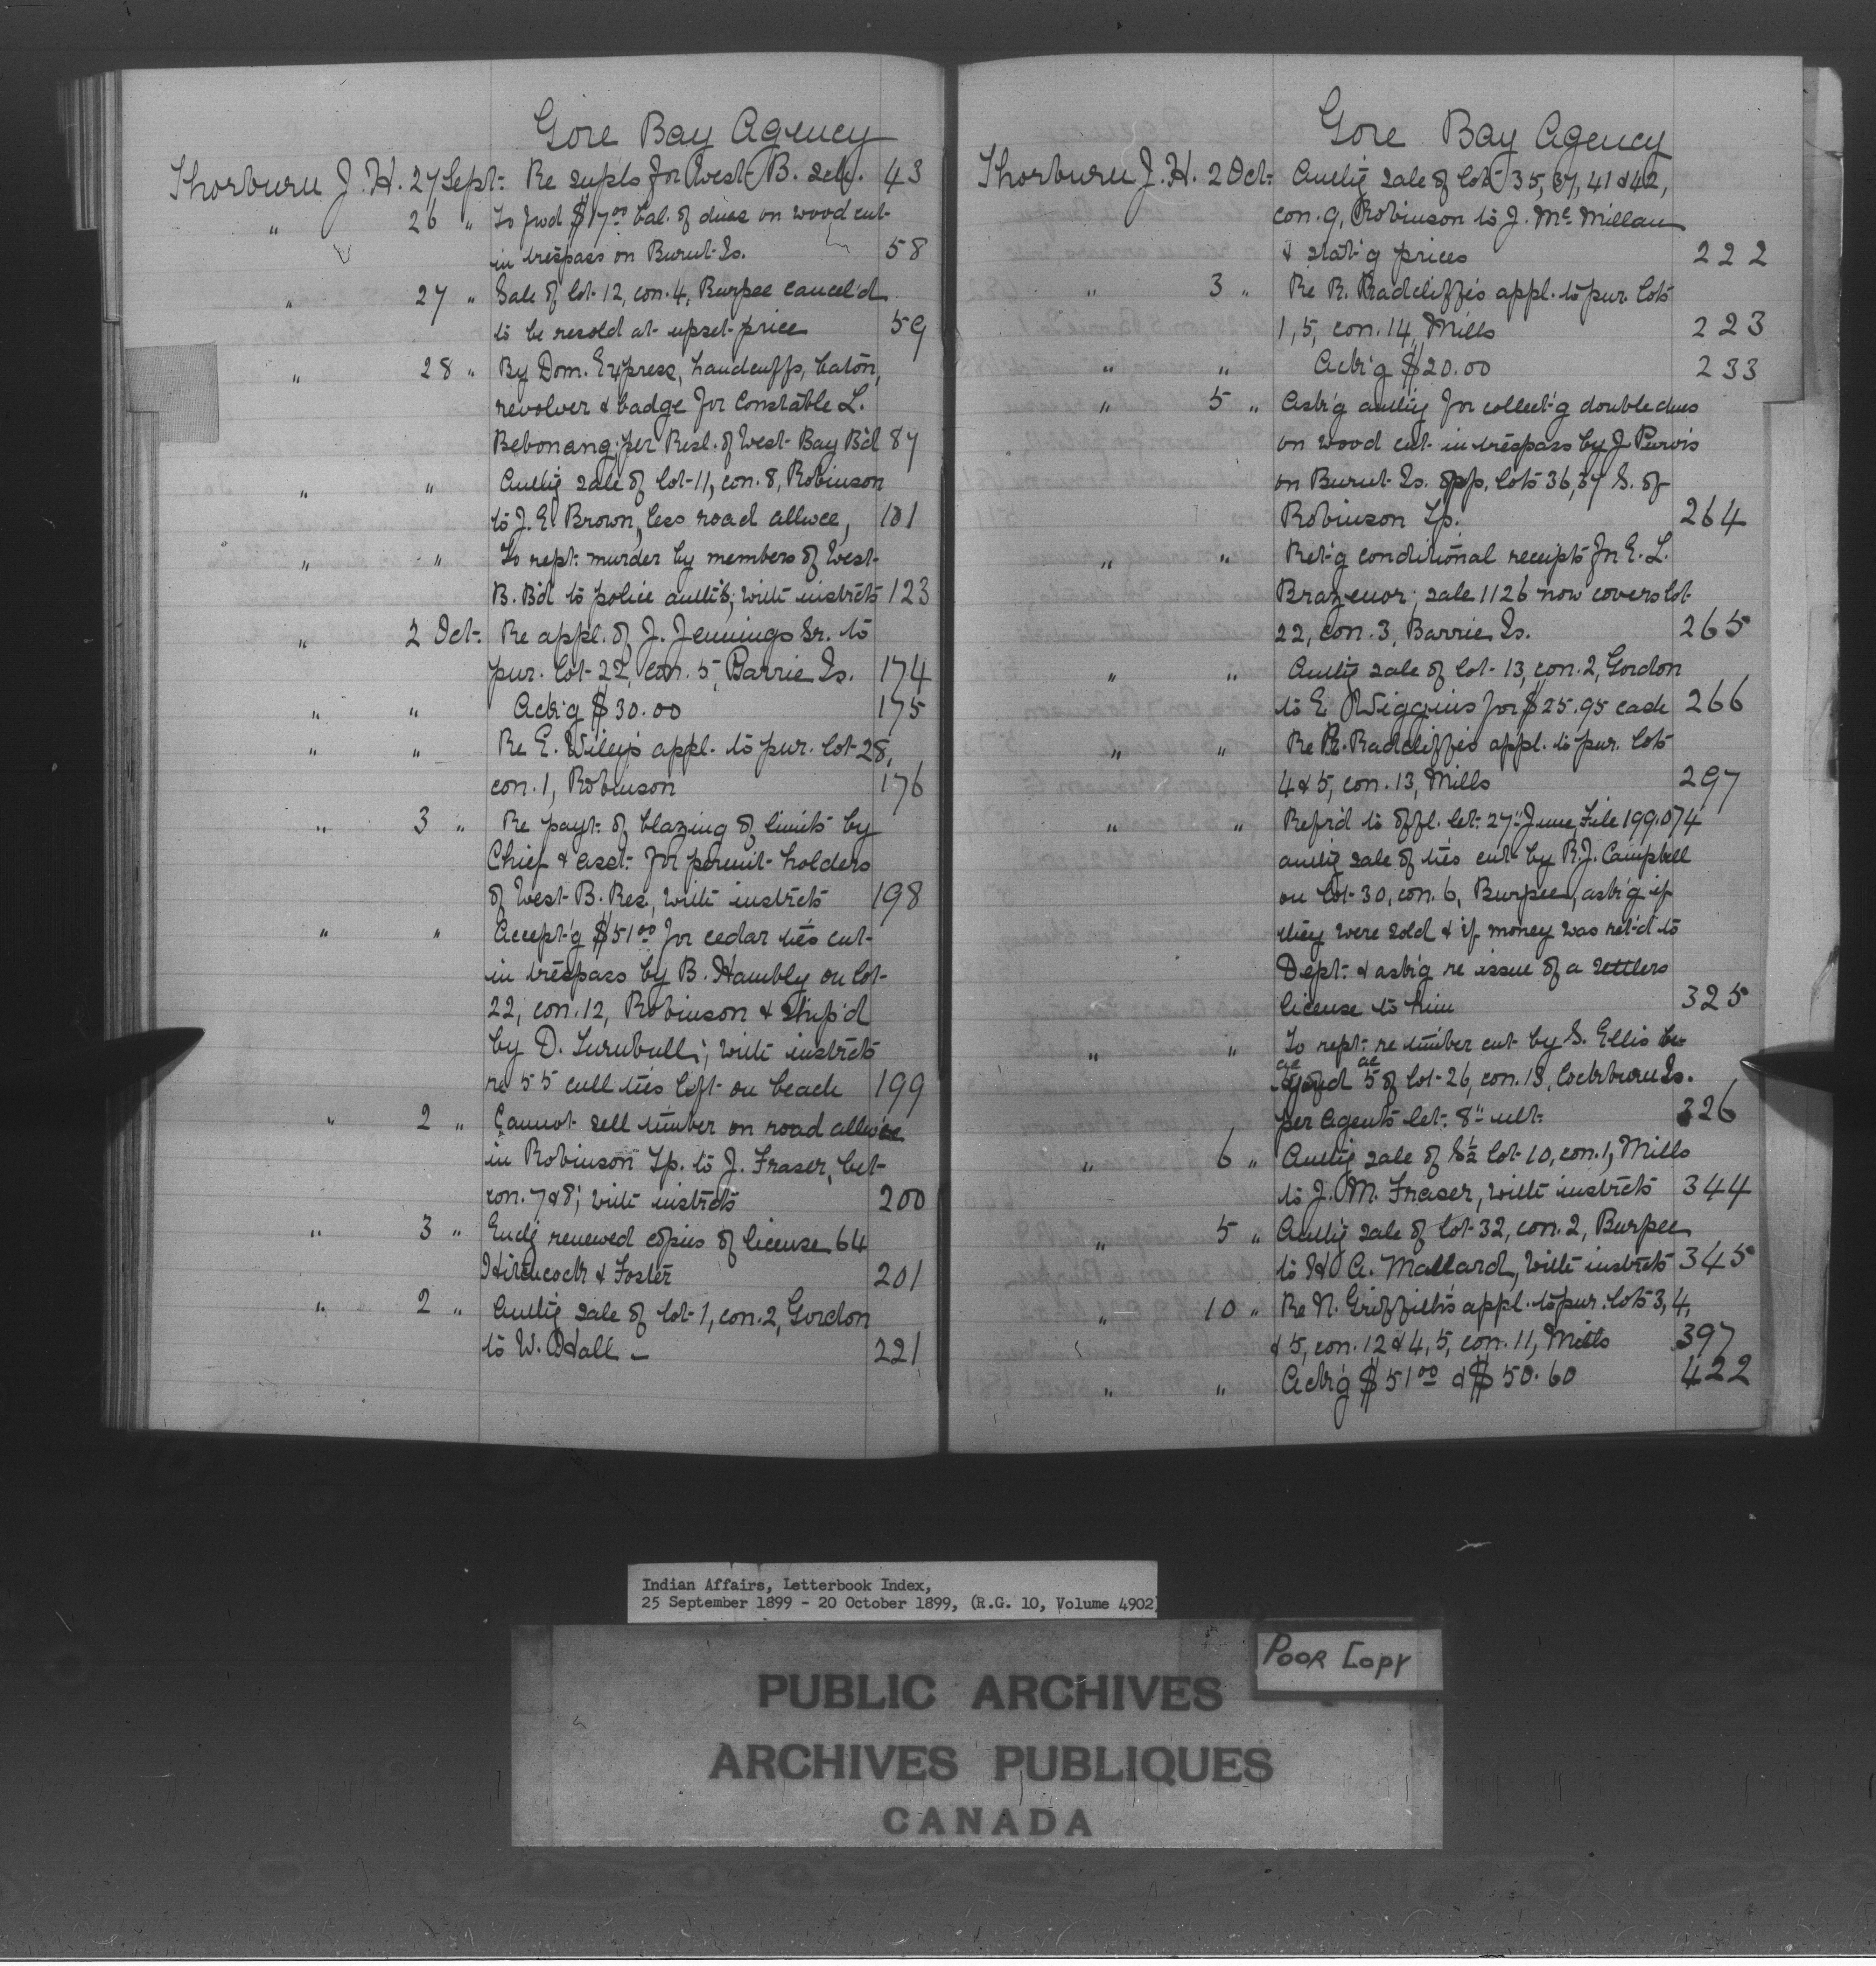 Gore Bay Agency
Thorburn J. H. 27 Sept. Re supls for West B. sch. 43
" 26 " To fwd $17.00 bal. of dues on wood cut
in trespass on Burnt Is. 58
" 27 " Sale of lot 12, con. 4, Burpee cancel'd
to be resold at upset price 59
" 28 " By Dom. Express, handcuffs, baton,
revolver & badge for Constable L.
Bebonang; per Resl. of West Bay B'd 87
" " Auth'g sale of lot 11, con. 8, Robinson
to J. E. Brown, less road allwce, 101
" " To rept. murder by members of West
B. B'd to police auth's; with instrcts 123
" 2 Oct. Re appl. of J. Jennings Sr. to
pur. lot 22, con. 5, Barrie Is. 174
" " Ack'g $30.00 175
" " Re E. Wiley's appl. to pur. lot 28,
con. 1, Robinson 176
" 3 " Re payt. of blazing of limits by
Chief & asst. for permit holders
of West B. Res., with instrcts 198
" " Accept'g $51.00 for cedar ties cut
in trespass by B. Hambly on lot
22, con. 12, Robinson & ship'd
by D. Turnbull; with instrcts
re 55 cull ties left on beach 199
" 2 " Cannot sell timber on road allwce
in Robinson Tp. to J. Fraser, bet.
con. 7 & 8; with instrcts 200
" 3 " Encl'g renewed copies of license 64
Hitchcock & Foster 201
" 2 " Auth'g sale of lot 1, con. 2, Gordon
to W. Hall – 221
Gore Bay Agency
Thorburn J. H. 2 Oct. Auth'g sale of lots 35, 37, 41 & 42,
con. 9, Robinson to J. McMillan
& stat'g prices 222
" 3 " Re R. Radcliffe's appl. to pur. lots
1, 5, con. 14, Mills 223
" " Ack'g $20.00 233
" 5 " Ask'g auth'y for collect'g double dues
on wood cut in trespass by J. Purvis
on Burnt Is. opp. lots 36, 37 S. of
Robinson Tp. 264
" " Ret'g conditional receipts fr. E. L.
Brazenor; sale 1126 now covers lot
22, con. 3, Barrie Is. 265
" " Auth'g sale of lot 13, con. 2, Gordon
to E. Wiggins for $25.95 cash 266
" " Re R. Radcliffe's appl. to pur. lots
4 & 5, con. 13, Mills 297
" " Ref'r'd to offl. let. 27" June, File 199.074
auth'g sale of ties cut by R. J. Campbell
on lot 30, con. 6, Burpee, ask'g if
they were sold & if money was ret'd to
Dept. & ask'g re issue of a settlers
license to him 325
" " To rept. re timber cut by S. Ellis
5 of lot 26, con. 13, Cockburn Is.
per Agents let. 8" ult. 326
" 6 " Auth'g sale of S½ lot 10, con. 1, Mills
to J. M. Fraser, with instrcts 344
" 5 " Auth'g sale of lot 32, con. 2, Burpee
to H. A. Mallard, with instrcts 345
" 10 " Re N. Griffith's appl. to pur. lots 3, 4,
& 5, con. 12 & 4, 5, con. 11, Mills 397
" " Ack'g $51.00 & $50.60 422
Indian Affairs, Letterbook Index,
25 September 1899 - 20 October 1899, (R.G. 10, Volume 4902)
POOR COPY
PUBLIC ARCHIVES
ARCHIVES PUBLIQUES
CANADA